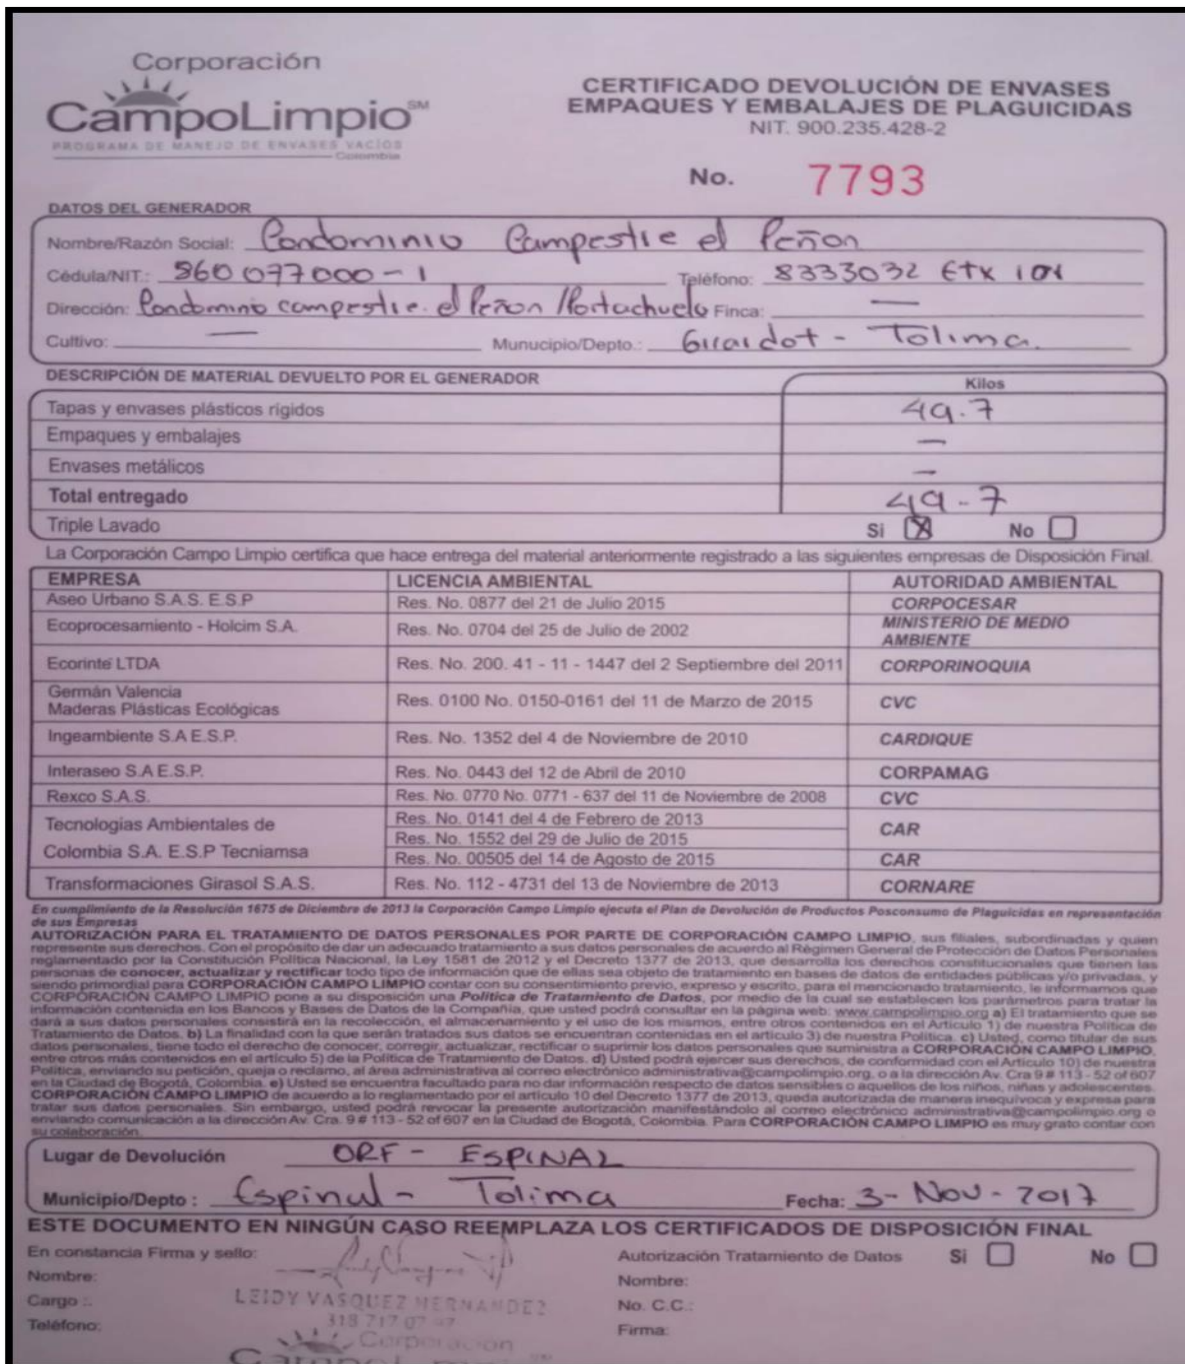 Corporación
CampoLimpio SM
PROGRAMA DE MANEJO DE ENVASES VACÍOS
Colombia
CERTIFICADO DEVOLUCIÓN DE ENVASES
EMPAQUES Y EMBALAJES DE PLAGUICIDAS
NIT. 900.235.428-2
No. 7793
DATOS DEL GENERADOR
Nombre/Razón Social: Condominio Campestre el Peñon
Cédula/NIT.: 860077000-1 Teléfono: 8333032 Etx 101
Dirección: Condominio campestre. el Peñon /Portachuelo Finca: —
Cultivo: — Munucipio/Depto.: Girardot - Tolima.
DESCRIPCIÓN DE MATERIAL DEVUELTO POR EL GENERADOR Kilos
Tapas y envases plásticos rígidos 49.7
Empaques y embalajes —
Envases metálicos —
Total entregado 49-7
Triple Lavado Si X No
La Corporación Campo Limpio certifica que hace entrega del material anteriormente registrado a las siguientes empresas de Disposición Final.
EMPRESA LICENCIA AMBIENTAL AUTORIDAD AMBIENTAL
Aseo Urbano S.A.S. E.S.P Res. No. 0877 del 21 de Julio 2015 CORPOCESAR
Ecoprocesamiento - Holcim S.A. Res. No. 0704 del 25 de Julio de 2002 MINISTERIO DE MEDIO
AMBIENTE
Ecorinte LTDA Res. No. 200. 41 - 11 - 1447 del 2 Septiembre del 2011 CORPORINOQUIA
Germán Valencia
Maderas Plásticas Ecológicas Res. 0100 No. 0150-0161 del 11 de Marzo de 2015 CVC
Ingeambiente S.A E.S.P. Res. No. 1352 del 4 de Noviembre de 2010 CARDIQUE
Interaseo S.A E.S.P. Res. No. 0443 del 12 de Abril de 2010 CORPAMAG
Rexco S.A.S. Res. No. 0770 No. 0771 - 637 del 11 de Noviembre de 2008 CVC
Tecnologias Ambientales de Res. No. 0141 del 4 de Febrero de 2013 CAR
Res. No. 1552 del 29 de Julio de 2015
Colombia S.A. E.S.P Tecniamsa Res. No. 00505 del 14 de Agosto de 2015 CAR
Transformaciones Girasol S.A.S. Res. No. 112 - 4731 del 13 de Noviembre de 2013 CORNARE
En cumplimiento de la Resolución 1675 de Diciembre de 2013 la Corporación Campo Limpio ejecuta el Plan de Devolución de Productos Posconsumo de Plaguicidas en representación
de sus Empresas
AUTORIZACIÓN PARA EL TRATAMIENTO DE DATOS PERSONALES POR PARTE DE CORPORACIÓN CAMPO LIMPIO, sus filiales, subordinadas y quien
represente sus derechos. Con el propósito de dar un adecuado tratamiento a sus datos personales de acuerdo al Régimen General de Protección de Datos Personales
reglamentado por la Constitución Política Nacional, la Ley 1581 de 2012 y el Decreto 1377 de 2013, que desarrolla los derechos constitucionales que tienen las
personas de conocer, actualizar y rectificar todo tipo de información que de ellas sea objeto de tratamiento en bases de datos de entidades públicas y/o privadas, y
siendo primordial para CORPORACIÓN CAMPO LIMPIO contar con su consentimiento previo, expreso y escrito, para el mencionado tratamiento, le informamos que
CORPORACIÓN CAMPO LIMPIO pone a su disposición una Política de Tratamiento de Datos, por medio de la cual se establecen los parámetros para tratar la
información contenida en los Bancos y Bases de Datos de la Compañía, que usted podrá consultar en la página web: www.campolimpio.org a) El tratamiento que se
dará a sus datos personales consistirá en la recolección, el almacenamiento y el uso de los mismos, entre otros contenidos en el Artículo 1) de nuestra Política de
Tratamiento de Datos. b) La finalidad con la que serán tratados sus datos se encuentran contenidas en el artículo 3) de nuestra Política. c) Usted, como titular de sus
datos personales, tiene todo el derecho de conocer, corregir, actualizar, rectificar o suprimir los datos personales que suministra a CORPORACIÓN CAMPO LIMPIO,
entre otros más contenidos en el artículo 5) de la Política de Tratamiento de Datos. d) Usted podrá ejercer sus derechos, de conformidad con el Artículo 10) de nuestra
Política, enviando su petición, queja o reclamo, al área administrativa al correo electrónico administrativa@campolimpio.org, o a la dirección Av. Cra 9 # 113 - 52 of 607
en la Ciudad de Bogotá, Colombia. e) Usted se encuentra facultado para no dar información respecto de datos sensibles o aquellos de los niños, niñas y adolescentes.
CORPORACIÓN CAMPO LIMPIO de acuerdo a lo reglamentado por el artículo 10 del Decreto 1377 de 2013, queda autorizada de manera inequívoca y expresa para
tratar sus datos personales. Sin embargo, usted podrá revocar la presente autorización manifestándolo al correo electrónico administrativa@campolimpio.org o
enviando comunicación a la dirección Av. Cra. 9 # 113 - 52 of 607 en la Ciudad de Bogotá, Colombia. Para CORPORACIÓN CAMPO LIMPIO es muy grato contar con
su colaboración.
Lugar de Devolución ORF - ESPINAL
Municipio/Depto : Espinal - Tolima Fecha: 3- Nov - 2017
ESTE DOCUMENTO EN NINGÚN CASO REEMPLAZA LOS CERTIFICADOS DE DISPOSICIÓN FINAL
En constancia Firma y sello: Autorización Tratamiento de Datos Si No
Nombre: Nombre:
Cargo :. LEIDY VASQUEZ HERNANDEZ No. C.C.:
Teléfono: 318 717 07 Firma:
Corporación